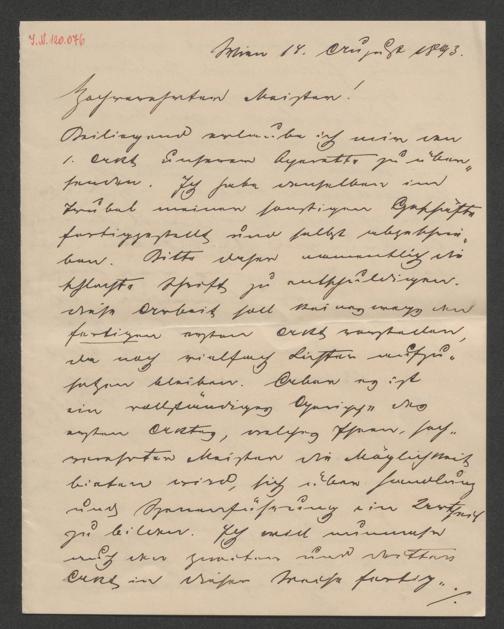 I.N. 120.076
Wien 14. August 1893.
Hochverehrter Meister!
Beiliegend erlaube ich mir den
1. Akt unserer Operette zu über„
senden. Ich habe denselben im
Trubel meiner sonstigen Geschäfte
fertiggestellt und selbst abgeschrie„
ben. Bitte daher namentlich die
schlechte Schrift zu entschuldigen.
Diese Arbeit soll keineswegs den
fertigen ersten Akt vorstellen,
da noch vielfach Lichter aufzu„
setzen bleiben. Aber es ist
ein vollständiges Gerippe des
ersten Aktes, welches Ihnen, hoch„
verehrter Meister die Möglichkeit
bieten wird, sich über Handlung
und Scenenführung ein Urtheil
zu bilden. Ich will nunmehr
auch den zweiten und dritten
Akt in dieser Weise fertig„
./.